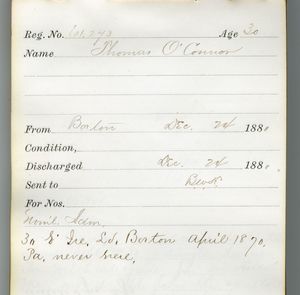 Reg. No. 101,243 Age 30
Name Thomas O'Connor
From Boston Dec. 24 188
Condition,
Discharged Dec. 24 188
Sent to
For Nos.
Adm.
30 Ire. Ld. Boston April 1870.
Pa. never here.